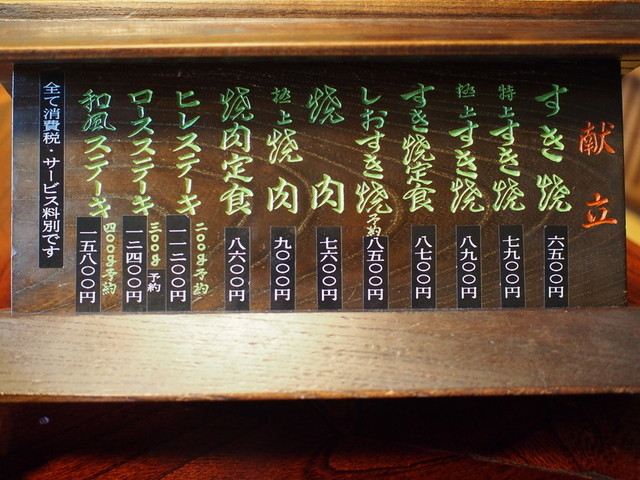 献立
すき焼
六五〇〇円
特上すき焼
七九〇〇円
極上すき焼
八九〇〇円
すき焼定食
八七〇〇円
しおすき焼予約
八五〇〇円
焼肉
七六〇〇円
極上焼肉
九〇〇〇円
焼肉定食
八六〇〇円
ヒレステーキ
二〇〇g予約
一一二〇〇円
ロースステーキ
三〇〇g予約
一二四〇〇円
和風ステーキ
四〇〇g予約
一五八〇〇円
全て消費税・サービス料別です